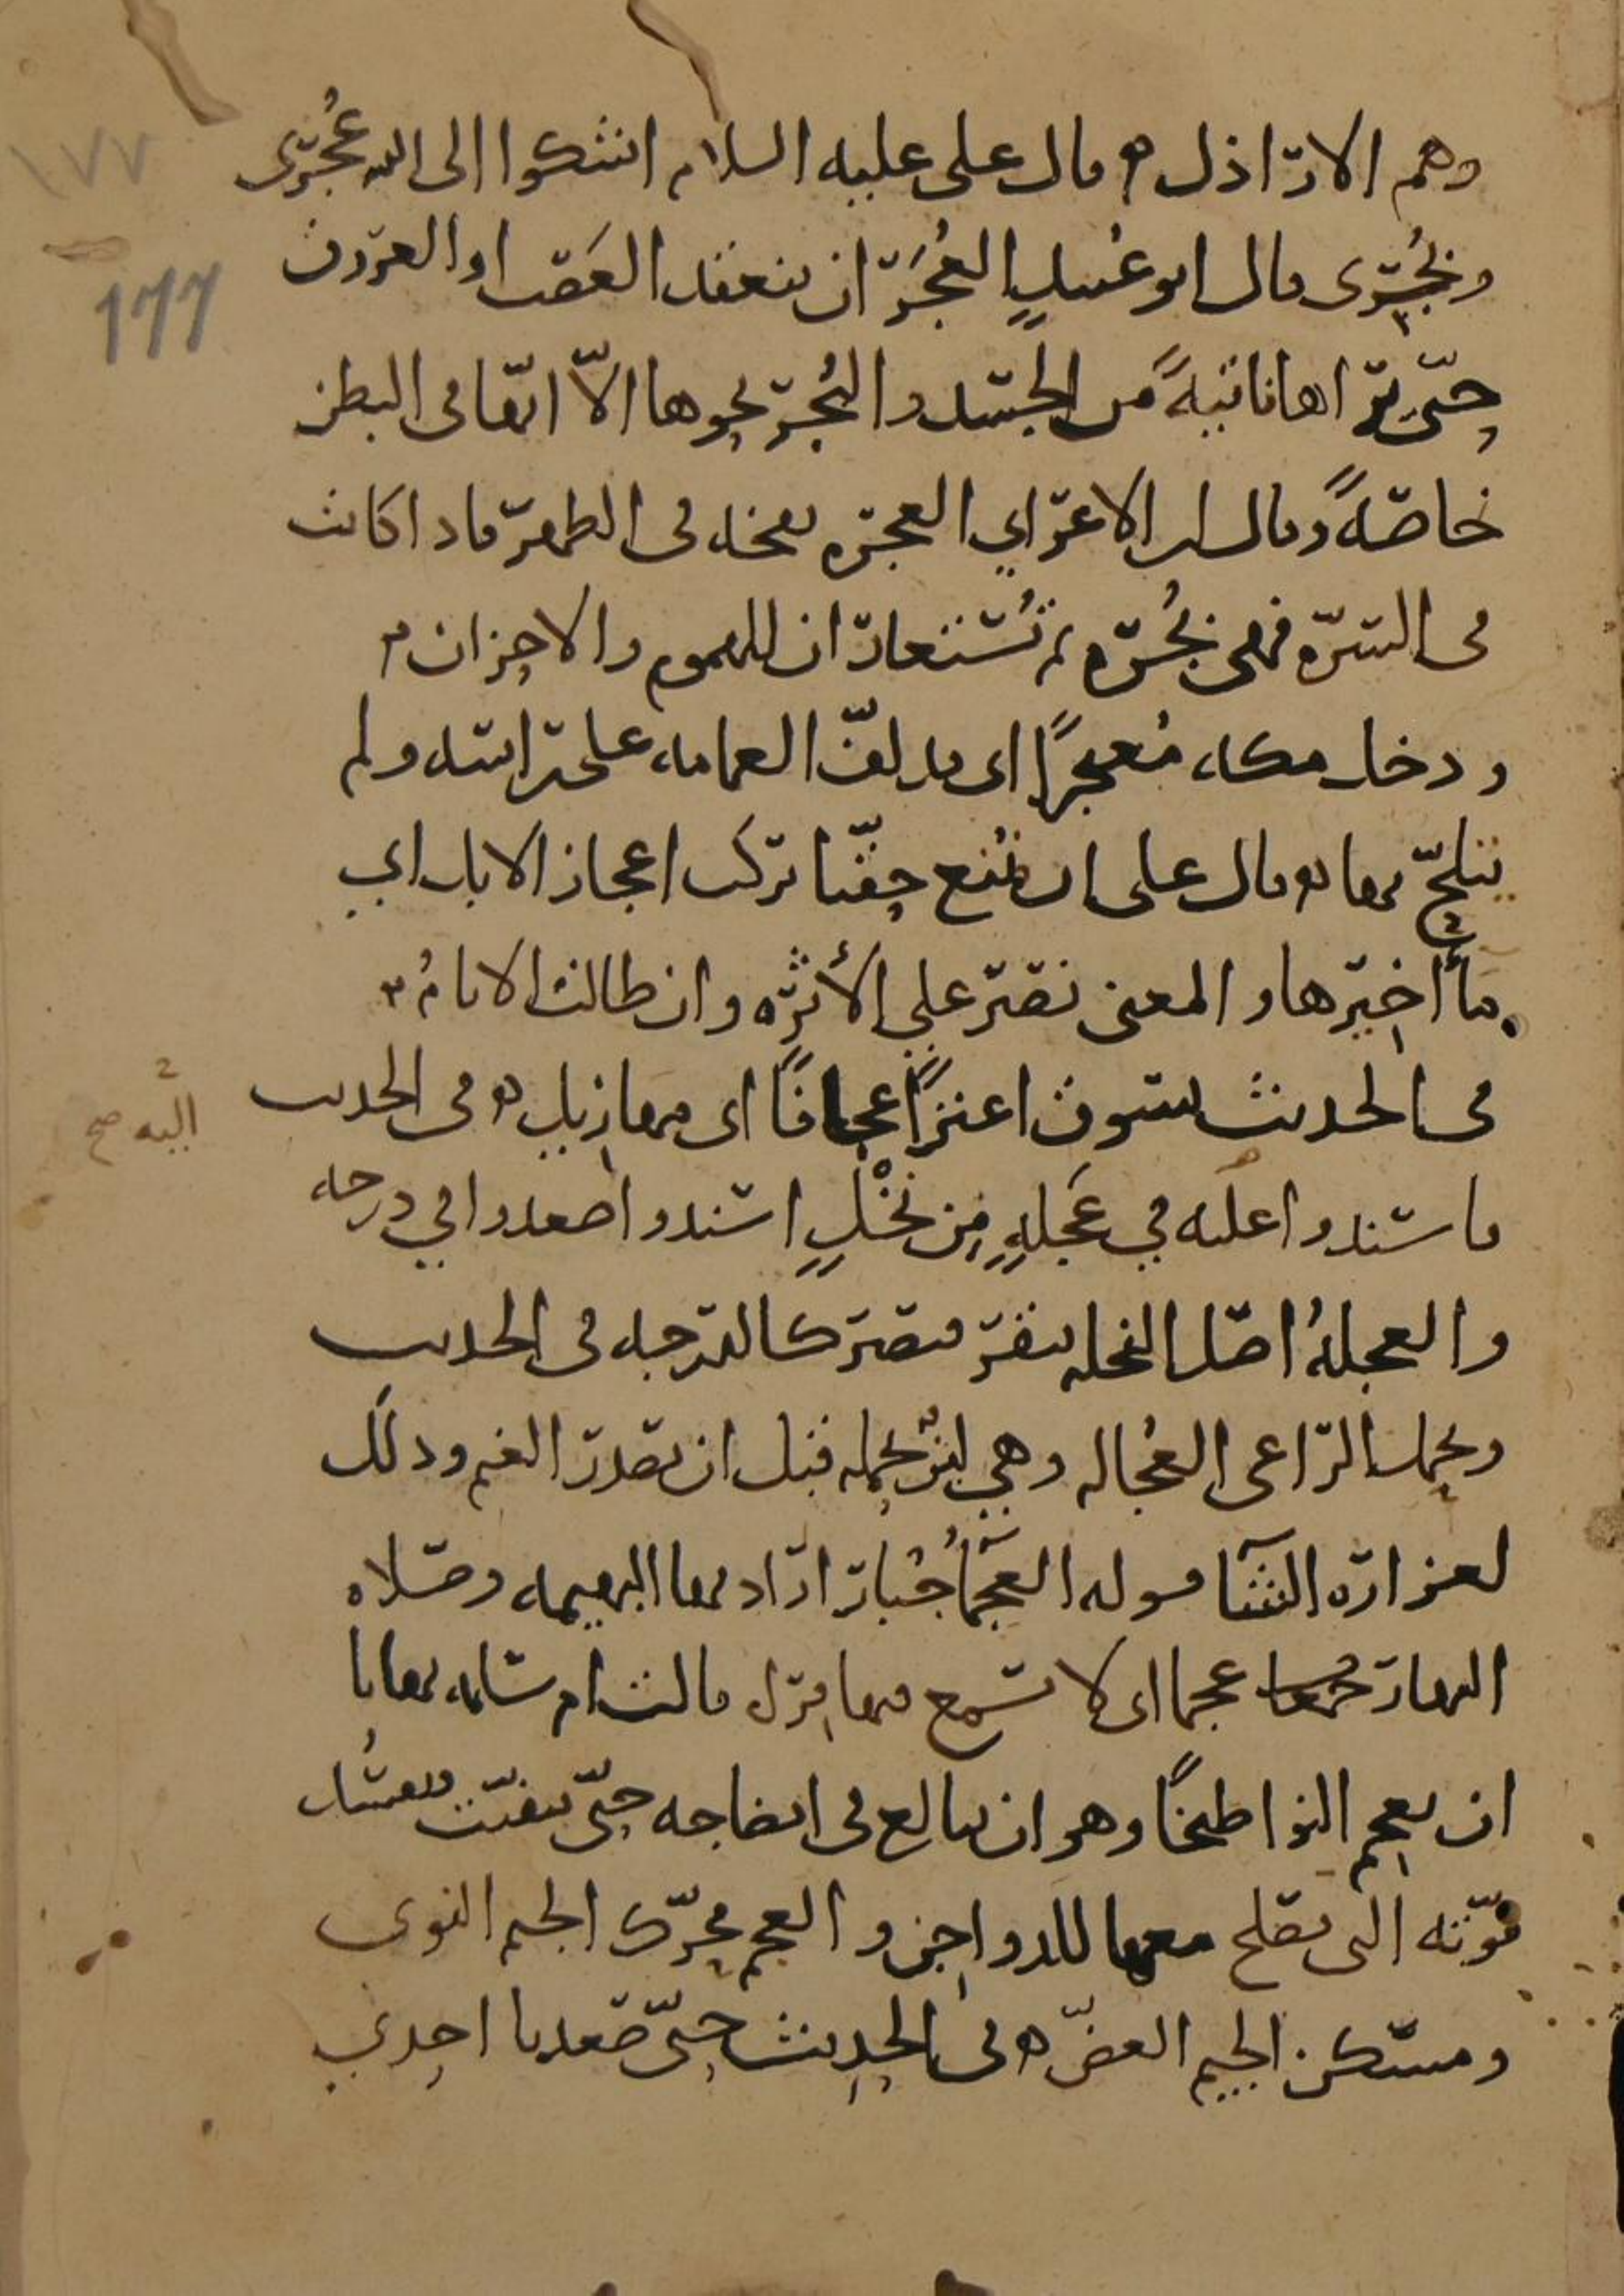 ١٧٧
177
وهم الاراذل ه قال على عليه السلام اشكوا الى الله عُجَرى
وبُجَرى قال ابو عُبيدٍ العُجَر ان ينعقد العَصَب او العروق
حتى تراها ناتيةً من الجسد والبُجَر نحوها الّا انها فى البطن
خاصةً وقال ابن الاعرابي العجره نفخه فى الظهر فاذا كانت
فى السره فهى بُجره ثم تُستعاران للهموم والاحزان ه
ودخل مكه مُعتجرًا اى قد لفّ العمامه على راسه ولم
يتلحّ بها ه قال على ان نُمنع حقنا نركب اعجاز الابل اي
مآخيرها والمعنى نصبر علي الأثره وان طالت الايامُ ه
فى الحديث يسوق اعنزًا عجافًا اى مهازيل ه فى الحديث
فاسندوا عليه في عَجَلةٍ مِن نَخْلٍ اسندوا صعدوا في درجه
اليه صح
والعجلةُ اصل النخله ينقر فيصير كالدرجه فى الحديث
ويحمل الراعى العُجاله وهي لبنٌ يحمله قبل ان تصدر الغنم وذلك
لغزاره الشتا قوله العَجمآُ جُبار اراد بها البهيمه وصلاه
النهار عجما اى لا تسمع فيها قراه قالت ام سلمه نهانا
ان نعجم النوا طبخًا وهو ان يبالغ فى انضاجه حتى يتفتت وتفسُد
قوّته التى تصلح معها للدواجن والعجم محرّك الجيم النوى
ومسكن الجيم العضّ ه فى الحديث حتى صعدنا احدي